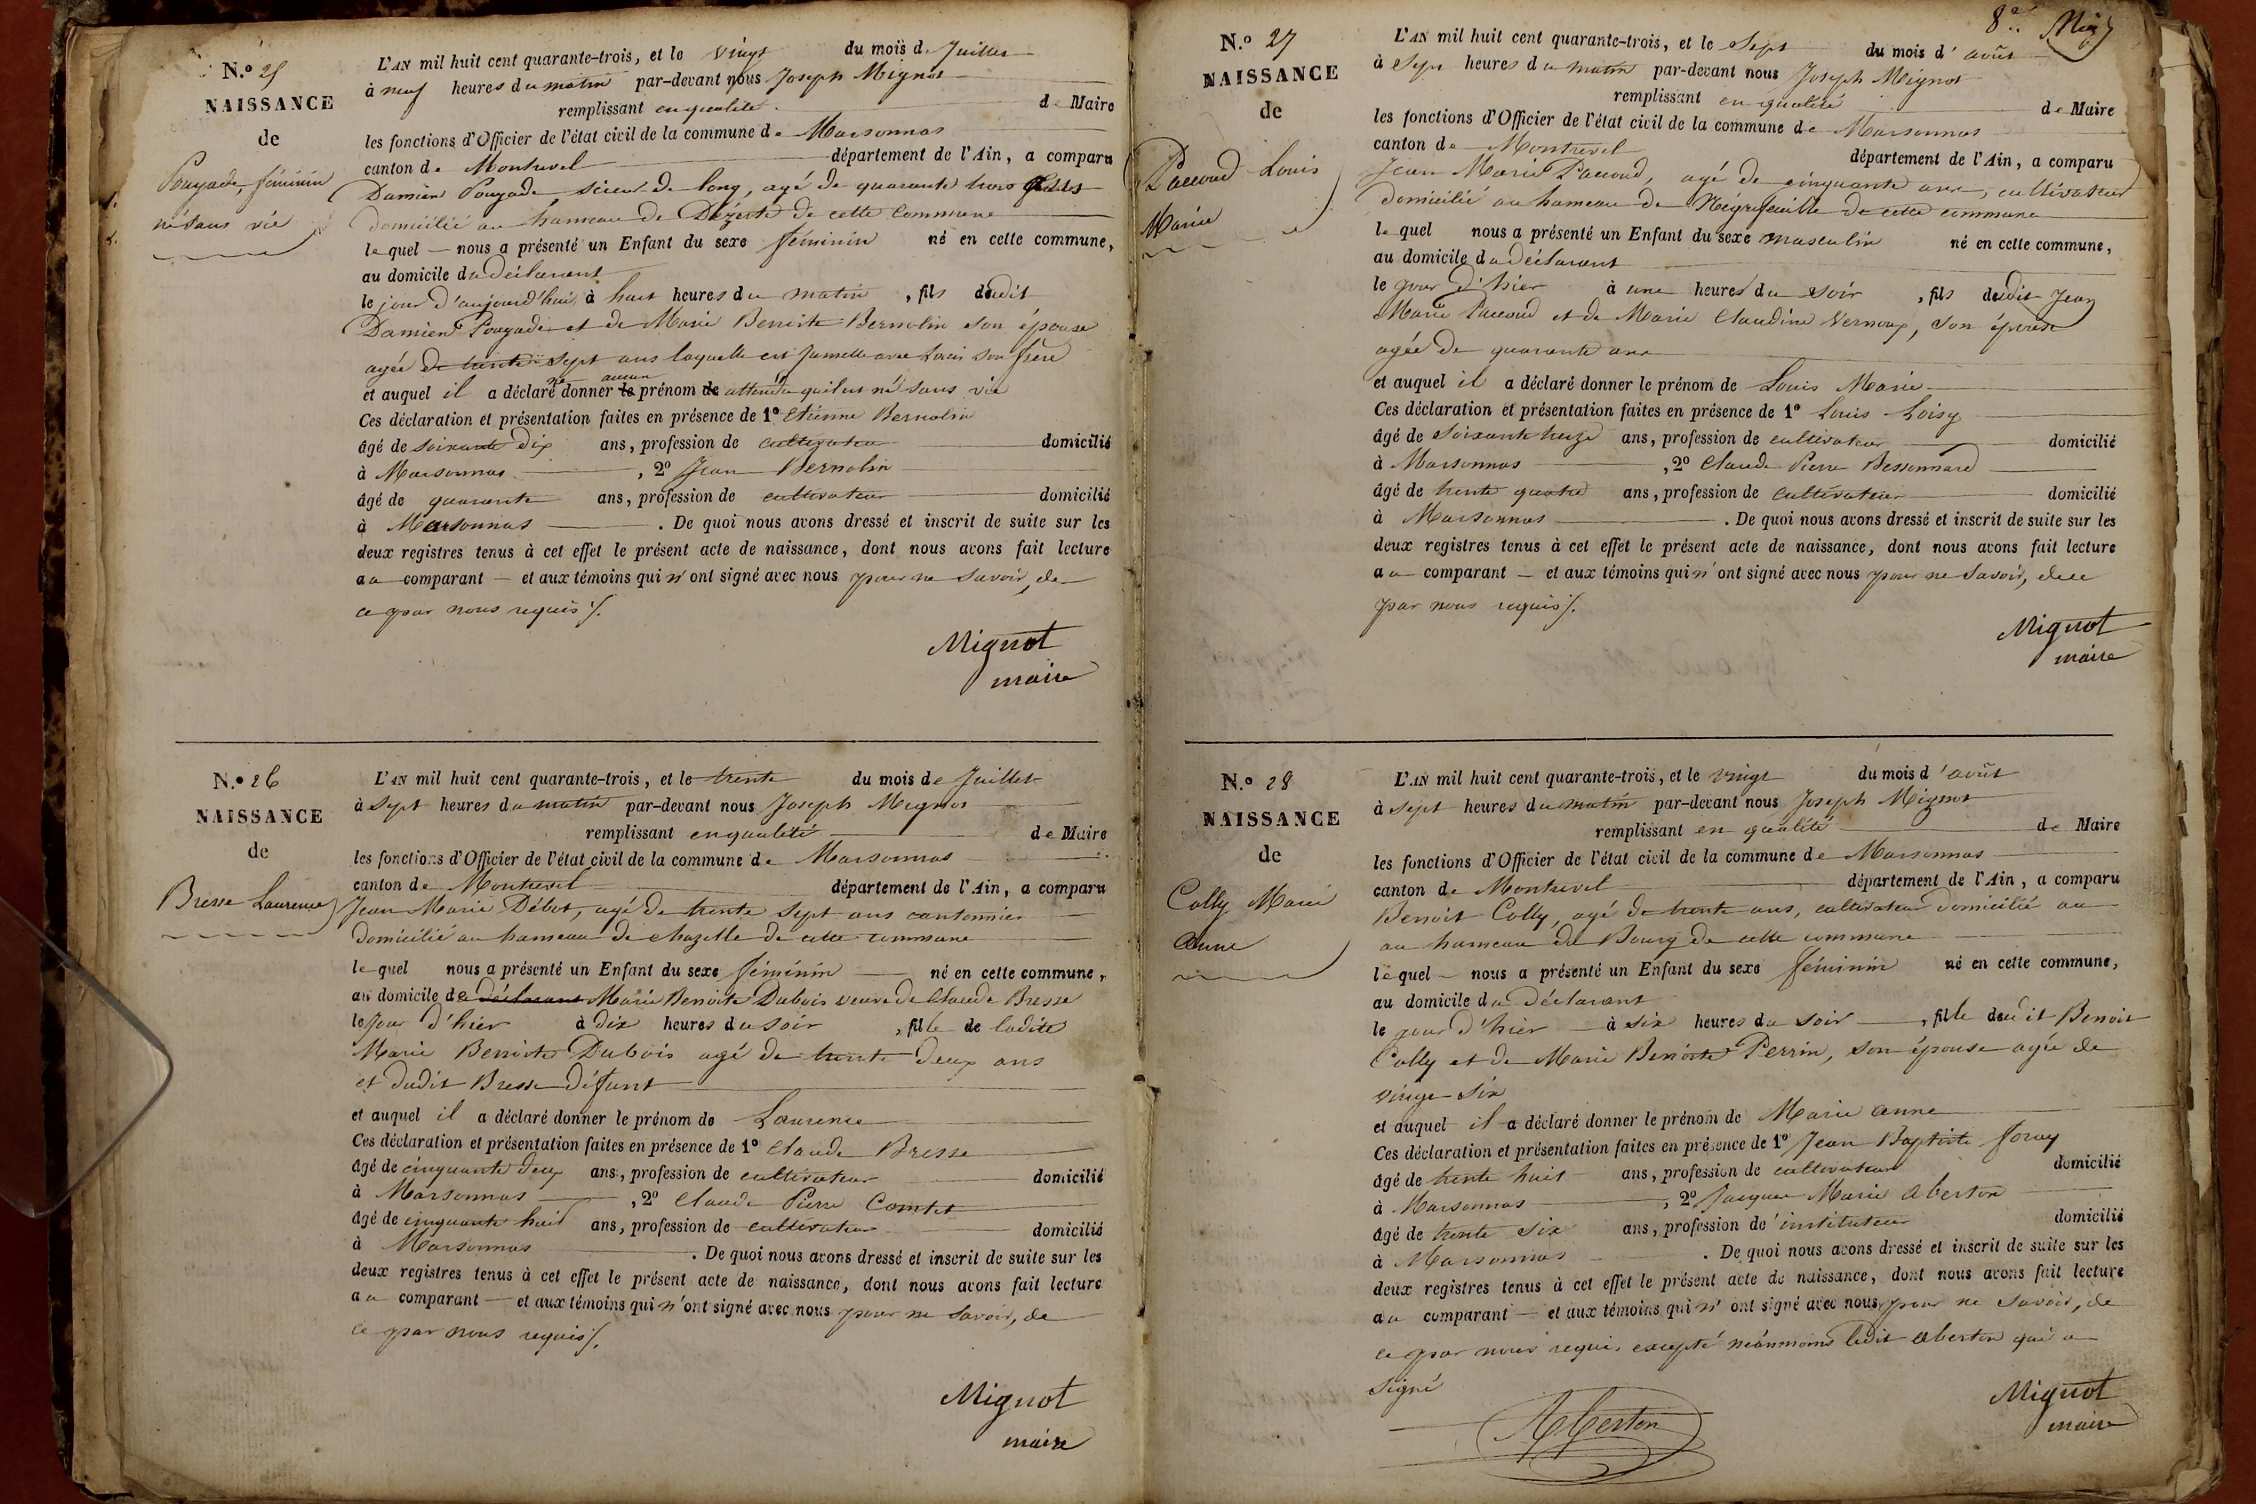 N.º 25
NAISSANCE
de
Pougade, féminin
né sans vie
L'AN mil huit cent quarante-trois, et le vingt du mois de Juillet
à neuf heures du matin par-devant nous Joseph Mignot
remplissant en qualité de Maire
les fonctions d'Officier de l'état civil de la commune de Marsonnas
canton de Montrevel département de l'Ain, a comparu
Damien Pougade scieur de long, agé de quarante trois
domicilié au hameau de Dezerte de cette commune
lequel nous a présenté un Enfant du sexe féminin né en cette commune,
au domicile du déclarant
le jour d'aujourd'hui à huit heures du matin, fils dudit
Damien Pougade et de Marie Benoite Bernolin son épouse
agée de trente sept ans laquelle est jumelle avec Louis son frère
et auquel il a déclaré ne donner le aucun prénom de attendu qu'il est né sans vie
Ces déclaration et présentation faites en présence de 1º Etienne Bernolin
âgé de soixante dix ans, profession de cultivateur domicilié
à Marsonnas, 2º Jean Bernolin
âgé de quarante ans, profession de cultivateur domicilié
à Marsonnas. De quoi nous avons dressé et inscrit de suite sur les
deux registres tenus à cet effet le présent acte de naissance, dont nous avons fait lecture
au comparant et aux témoins qui n'ont signé avec nous pour ne savoir, de
ce par nous requis /.
Mignot
maire
N.º 26
NAISSANCE
de
Bresse Laurence
L'AN mil huit cent quarante-trois, et le trente du mois de Juillet
à sept heures du matin par-devant nous Joseph Mignot
remplissant en qualité de Maire
les fonctions d'Officier de l'état civil de la commune de Marsonnas
canton de Montrevel département de l'Ain, a comparu
Jean Marie Débot, agé de trente sept ans cantonnier
domicilié au hameau de chazelle de cette commune
lequel nous a présenté un Enfant du sexe féminin né en cette commune,
au domicile de déclarant Marie Benoite Dubois veuve de Claude Bresse
le jour d'hier à dix heures du soir, fille de ladite
Marie Benoite Dubois agé de trente deux ans
et dudit Bresse défunt
et auquel il a déclaré donner le prénom de Laurence
Ces déclaration et présentation faites en présence de 1º Claude Bresse
âgé de cinquante deux ans, profession de cultivateur domicilié
à Marsonnas, 2º Claude Pierre Comtet
âgé de cinquante huit ans, profession de cultivateur domicilié
à Marsonnas. De quoi nous avons dressé et inscrit de suite sur les
deux registres tenus à cet effet le présent acte de naissance, dont nous avons fait lecture
au comparant et aux témoins qui n'ont signé avec nous pour ne savoir, de
ce par nous requis /.
Mignot
maire
8e
N.º 27
NAISSANCE
de
Paccoud Louis
Marie
L'AN mil huit cent quarante-trois, et le sept du mois d'août
à sept heures du matin par-devant nous Joseph Mignot
remplissant en qualité de Maire
les fonctions d'Officier de l'état civil de la commune de Marsonnas
canton de Montrevel département de l'Ain, a comparu
Jean Marie Paccoud, agé de cinquante ans, cultivateur
domicilié au hameau de Négrefeuille de cette commune
lequel nous a présenté un Enfant du sexe masculin né en cette commune,
au domicile du déclarant
le jour d'hier à une heures du soir, fils dudit Jean
Marie Paccoud et de Marie Claudine Vernoux, son épouse
agée de quarante ans
et auquel il a déclaré donner le prénom de Louis Marie
Ces déclaration et présentation faites en présence de 1º Louis Loisy
âgé de soixante treize ans, profession de cultivateur domicilié
à Marsonnas, 2º Claude Pierre Bessonnard
âgé de trente quatre ans, profession de cultivateur domicilié
à Marsonnas. De quoi nous avons dressé et inscrit de suite sur les
deux registres tenus à cet effet le présent acte de naissance, dont nous avons fait lecture
au comparant et aux témoins qui n'ont signé avec nous pour ne savoir, de ce
par nous requis /.
Mignot
maire
N.º 28
NAISSANCE
de
Colly Marie
anne
L'AN mil huit cent quarante-trois, et le vingt du mois d'août
à sept heures du matin par-devant nous Joseph Mignot
remplissant en qualité de Maire
les fonctions d'Officier de l'état civil de la commune de Marsonnas
canton de Montrevel département de l'Ain, a comparu
Benoit Colly, agé de trente ans, cultivateur domicilié au
au hameau du Bourg de cette commune
lequel nous a présenté un Enfant du sexe féminin né en cette commune,
au domicile du déclarant
le jour d'hier à six heures du soir, fille dudit Benoit
Colly et de Marie Benoite Perrin, son épouse agée de
vingt six
et auquel il a déclaré donner le prénom de Marie anne
Ces déclaration et présentation faites en présence de 1º Jean Baptiste
âgé de trente huit ans, profession de cultivateur domicilié
à Marsonnas, 2º Jacques Marie aberton
âgé de trente six ans, profession d'instituteur domicilié
à Marsonnas. De quoi nous avons dressé et inscrit de suite sur les
deux registres tenus à cet effet le présent acte de naissance, dont nous avons fait lecture
au comparant et aux témoins qui n'ont signé avec nous pour ne savoir, de
ce par nous requis excepté néanmoins ledit aberton qui a
signé
Aberton
Mignot
maire